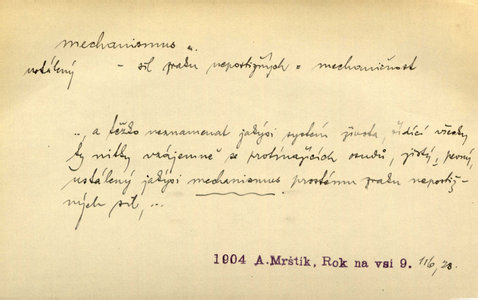 mechanismus
ustálený – sil zraku nepostižných = mechaničnost
„ a těžko neznamenat jakýsi systém života, řídící všecky
ty nitky vzájemně se protínajících osudů, jistý, pevný,
ustálený jakýsi mechanismus prostému zraku nepostiž-
ných sil, ...
1904 A.Mrštík, Rok na vsi 9. 116,